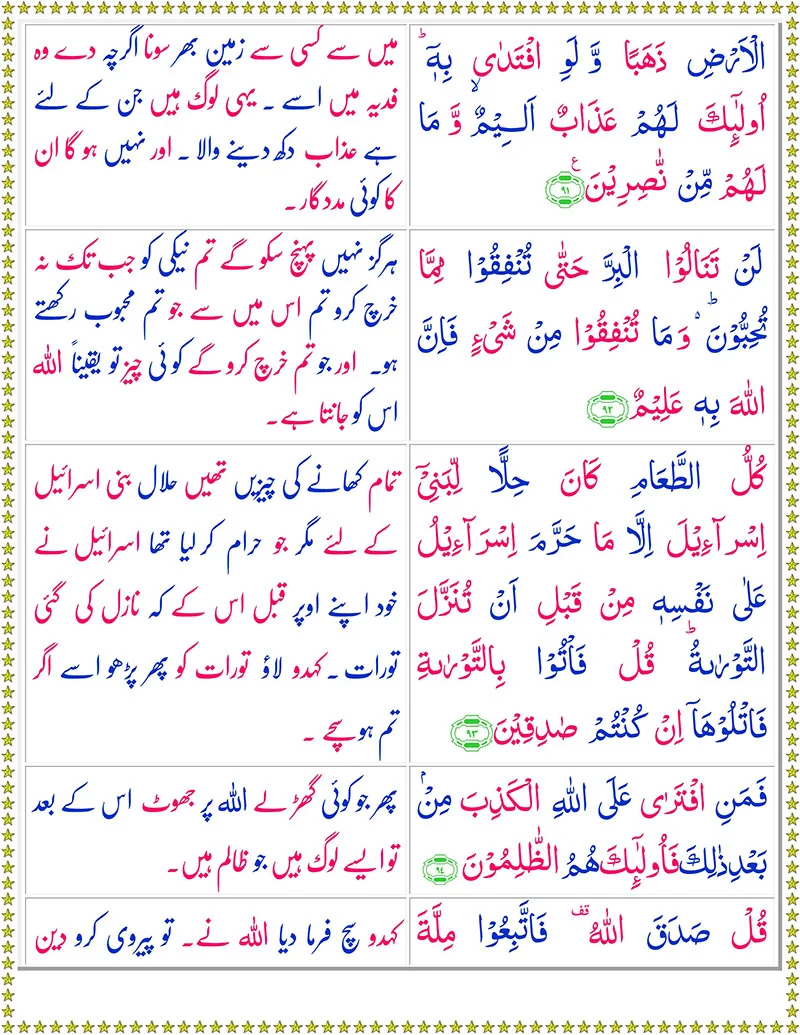 الْاَرْضِ ذَهَبًا وَّ لَوِ افْتَدٰى بِهٖؕ
اُولٰٓىِٕكَ لَهُمْ عَذَابٌ اَلِیْمٌ وَّ مَا
لَهُمْ مِّنْ نّٰصِرِیْنَ۠ ﴿۹۱﴾
میں سے کسی سے زمین بھر سونا اگرچہ دے وہ
فدیہ میں اسے ۔ یہی لوگ ہیں جن کے لئے
ہے عذاب دکھ دینے والا ۔ اور نہیں ہو گا ان
کا کوئی مددگار۔
لَنْ تَنَالُوا الْبِرَّ حَتّٰى تُنْفِقُوْا مِمَّا
تُحِبُّوْنَ ؕ۬ وَ مَا تُنْفِقُوْا مِنْ شَیْءٍ فَاِنَّ
اللّٰهَ بِهٖ عَلِیْمٌ ﴿۹۲﴾
ہرگز نہیں پہنچ سکو گے تم نیکی کو جب تک نہ
خرچ کرو تم اس میں سے جو تم محبوب رکھتے
ہو۔ اور جو تم خرچ کرو گے کوئی چیز تو یقیناً اللہ
اس کو جانتا ہے۔
كُلُّ الطَّعَامِ كَانَ حِلًّا لِّبَنِیْۤ
اِسْرَآءِیْلَ اِلَّا مَا حَرَّمَ اِسْرَآءِیْلُ
عَلٰى نَفْسِهٖ مِنْ قَبْلِ اَنْ تُنَزَّلَ
التَّوْرٰىةُؕ قُلْ فَاْتُوْا بِالتَّوْرٰىةِ
فَاتْلُوْهَاۤ اِنْ كُنْتُمْ صٰدِقِیْنَ ﴿۹۳﴾
تمام کھانے کی چیزیں تھیں حلال بنی اسرائیل
کے لئے مگر جو حرام کر لیا تھا اسرائیل نے
خود اپنے اوپر قبل اس کے کہ نازل کی گئی
تورات ۔ کہدو لاؤ تورات کو پھر پڑھو اسے اگر
تم ہو سچے ۔
فَمَنِ افْتَرٰى عَلَى اللّٰهِ الْكَذِبَ مِنْۢ
بَعْدِ ذٰلِكَ فَاُولٰٓىِٕكَ هُمُ الظّٰلِمُوْنَ ﴿۹۴﴾
پھر جو کوئی گھڑ لے اللہ پر جھوٹ اس کے بعد
تو ایسے لوگ ہیں جو ظالم ہیں۔
قُلْ صَدَقَ اللّٰهُ ۫ قف فَاتَّبِعُوْا مِلَّةَ
کہدو سچ فرما دیا اللہ نے۔ تو پیروی کرو دین